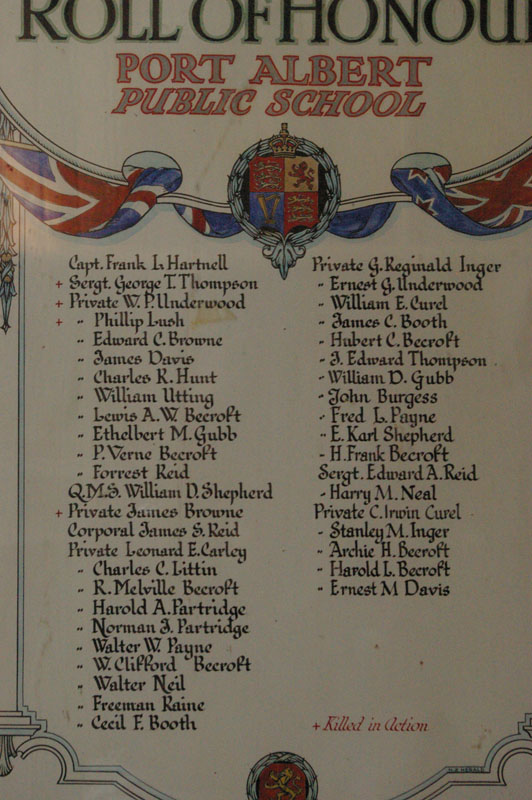 ROLL OF HONOU
PORT ALBERT
PUBLIC SCHOOL
Capt. Frank L Hartnell
+ Sergt. George T. Thompson
+ Private W. P. Underwood
+ „ Phillip Lush
„ Edward C. Browne
„ James Davis
„ Charles K. Hunt
„ William Utting
„ Lewis A. W. Becroft
„ Ethelbert M. Gubb
„ P. Verne Becroft
„ Forrest Reid
Q.M.S. William D. Shepherd
+ Private James Browne
Corporal James S. Reid
Private Leonard E. Carley
„ Charles C. Littin
„ R. Melville Becroft
„ Harold A. Partridge
„ Norman J. Partridge
„ Walter W. Payne
„ W. Clifford Becroft
„ Walter Neil
„ Freeman Raine
„ Cecil F. Booth
Private G. Reginald Inger
„ Ernest G. Underwood
„ William E. Curel
„ James C. Booth
„ Hubert C. Becroft
„ J. Edward Thompson
„ William D. Gubb
„ John Burgess
„ Fred L. Payne
„ E. Karl Shepherd
„ H. Frank Becroft
Sergt. Edward A. Reid
„ Harry M. Neal
Private C. Irwin Curel
„ Stanley M. Inger
„ Archie H. Becroft
„ Harold L. Becroft
„ Ernest M Davis
+ Killed in Action